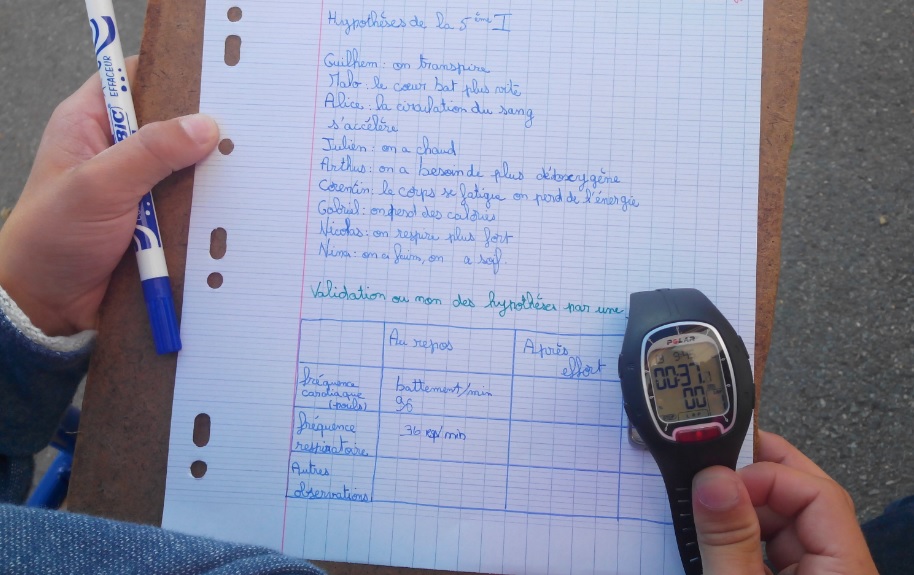 Hypothèses de la 5ème I
Guilhem : on transpire
Malo : le cœur bat plus vite
Alice : la circulation du sang
s'accélère
Julien : on a chaud
Arthus : on a besoin de plus d'oxygène
Corentin : le corps se fatigue on perd de l'énergie
Gabriel : on perd des calories
Nicolas : on respire plus fort
Nina : on a faim, on a soif.
Validation ou non des hypothèses par une
Au repos
Après
effort
fréquence
cardiaque
(pouls)
battement/min
96
fréquence
respiratoire
36 /min
Autres
observations
BIC
EFFACEUR
POLAR
00:37.
00